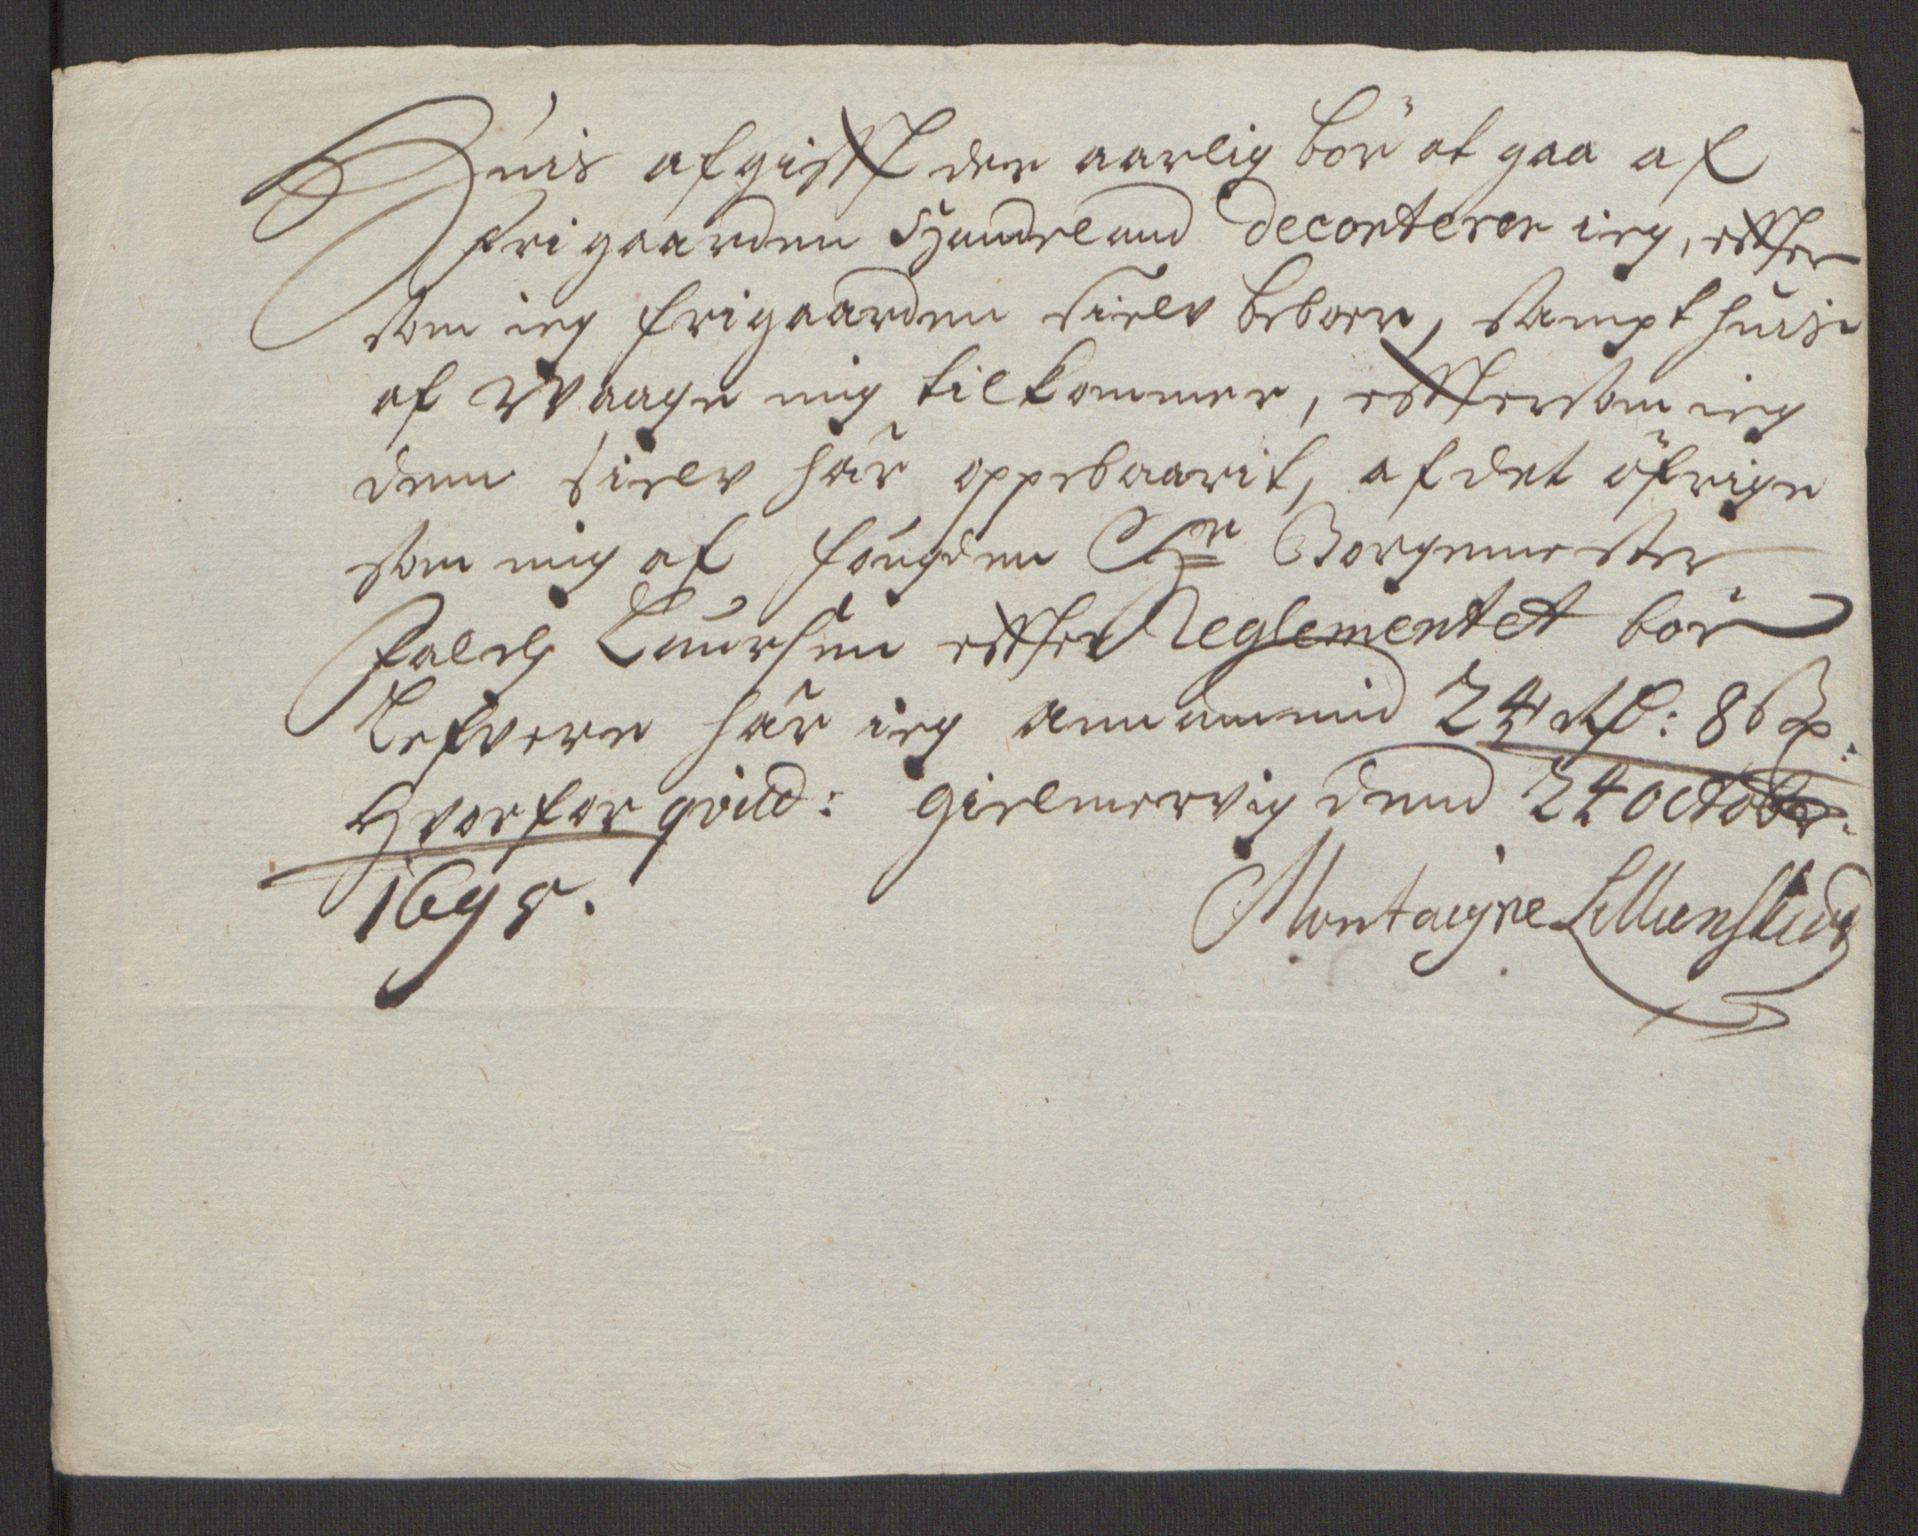 Huis afgifft der aarlig bör at gaa af
frigaarden Hundeland decorterer ieg, effter
som ieg frigaarden sielv beboer, sampt huis
af Waage mig tilkommer, effttersom ieg
dem sielv hâr oppebaarit, af det öfrige
som mig af fougden Hr Borgemester
Falch Laursen effter Reglementet bör
Lefvere hâr ieg annammid 24 Rd: 8 ß
Hvorfor qvitd: Gielmervig dend 24 october
1695.
Montaigne Lillienskiold